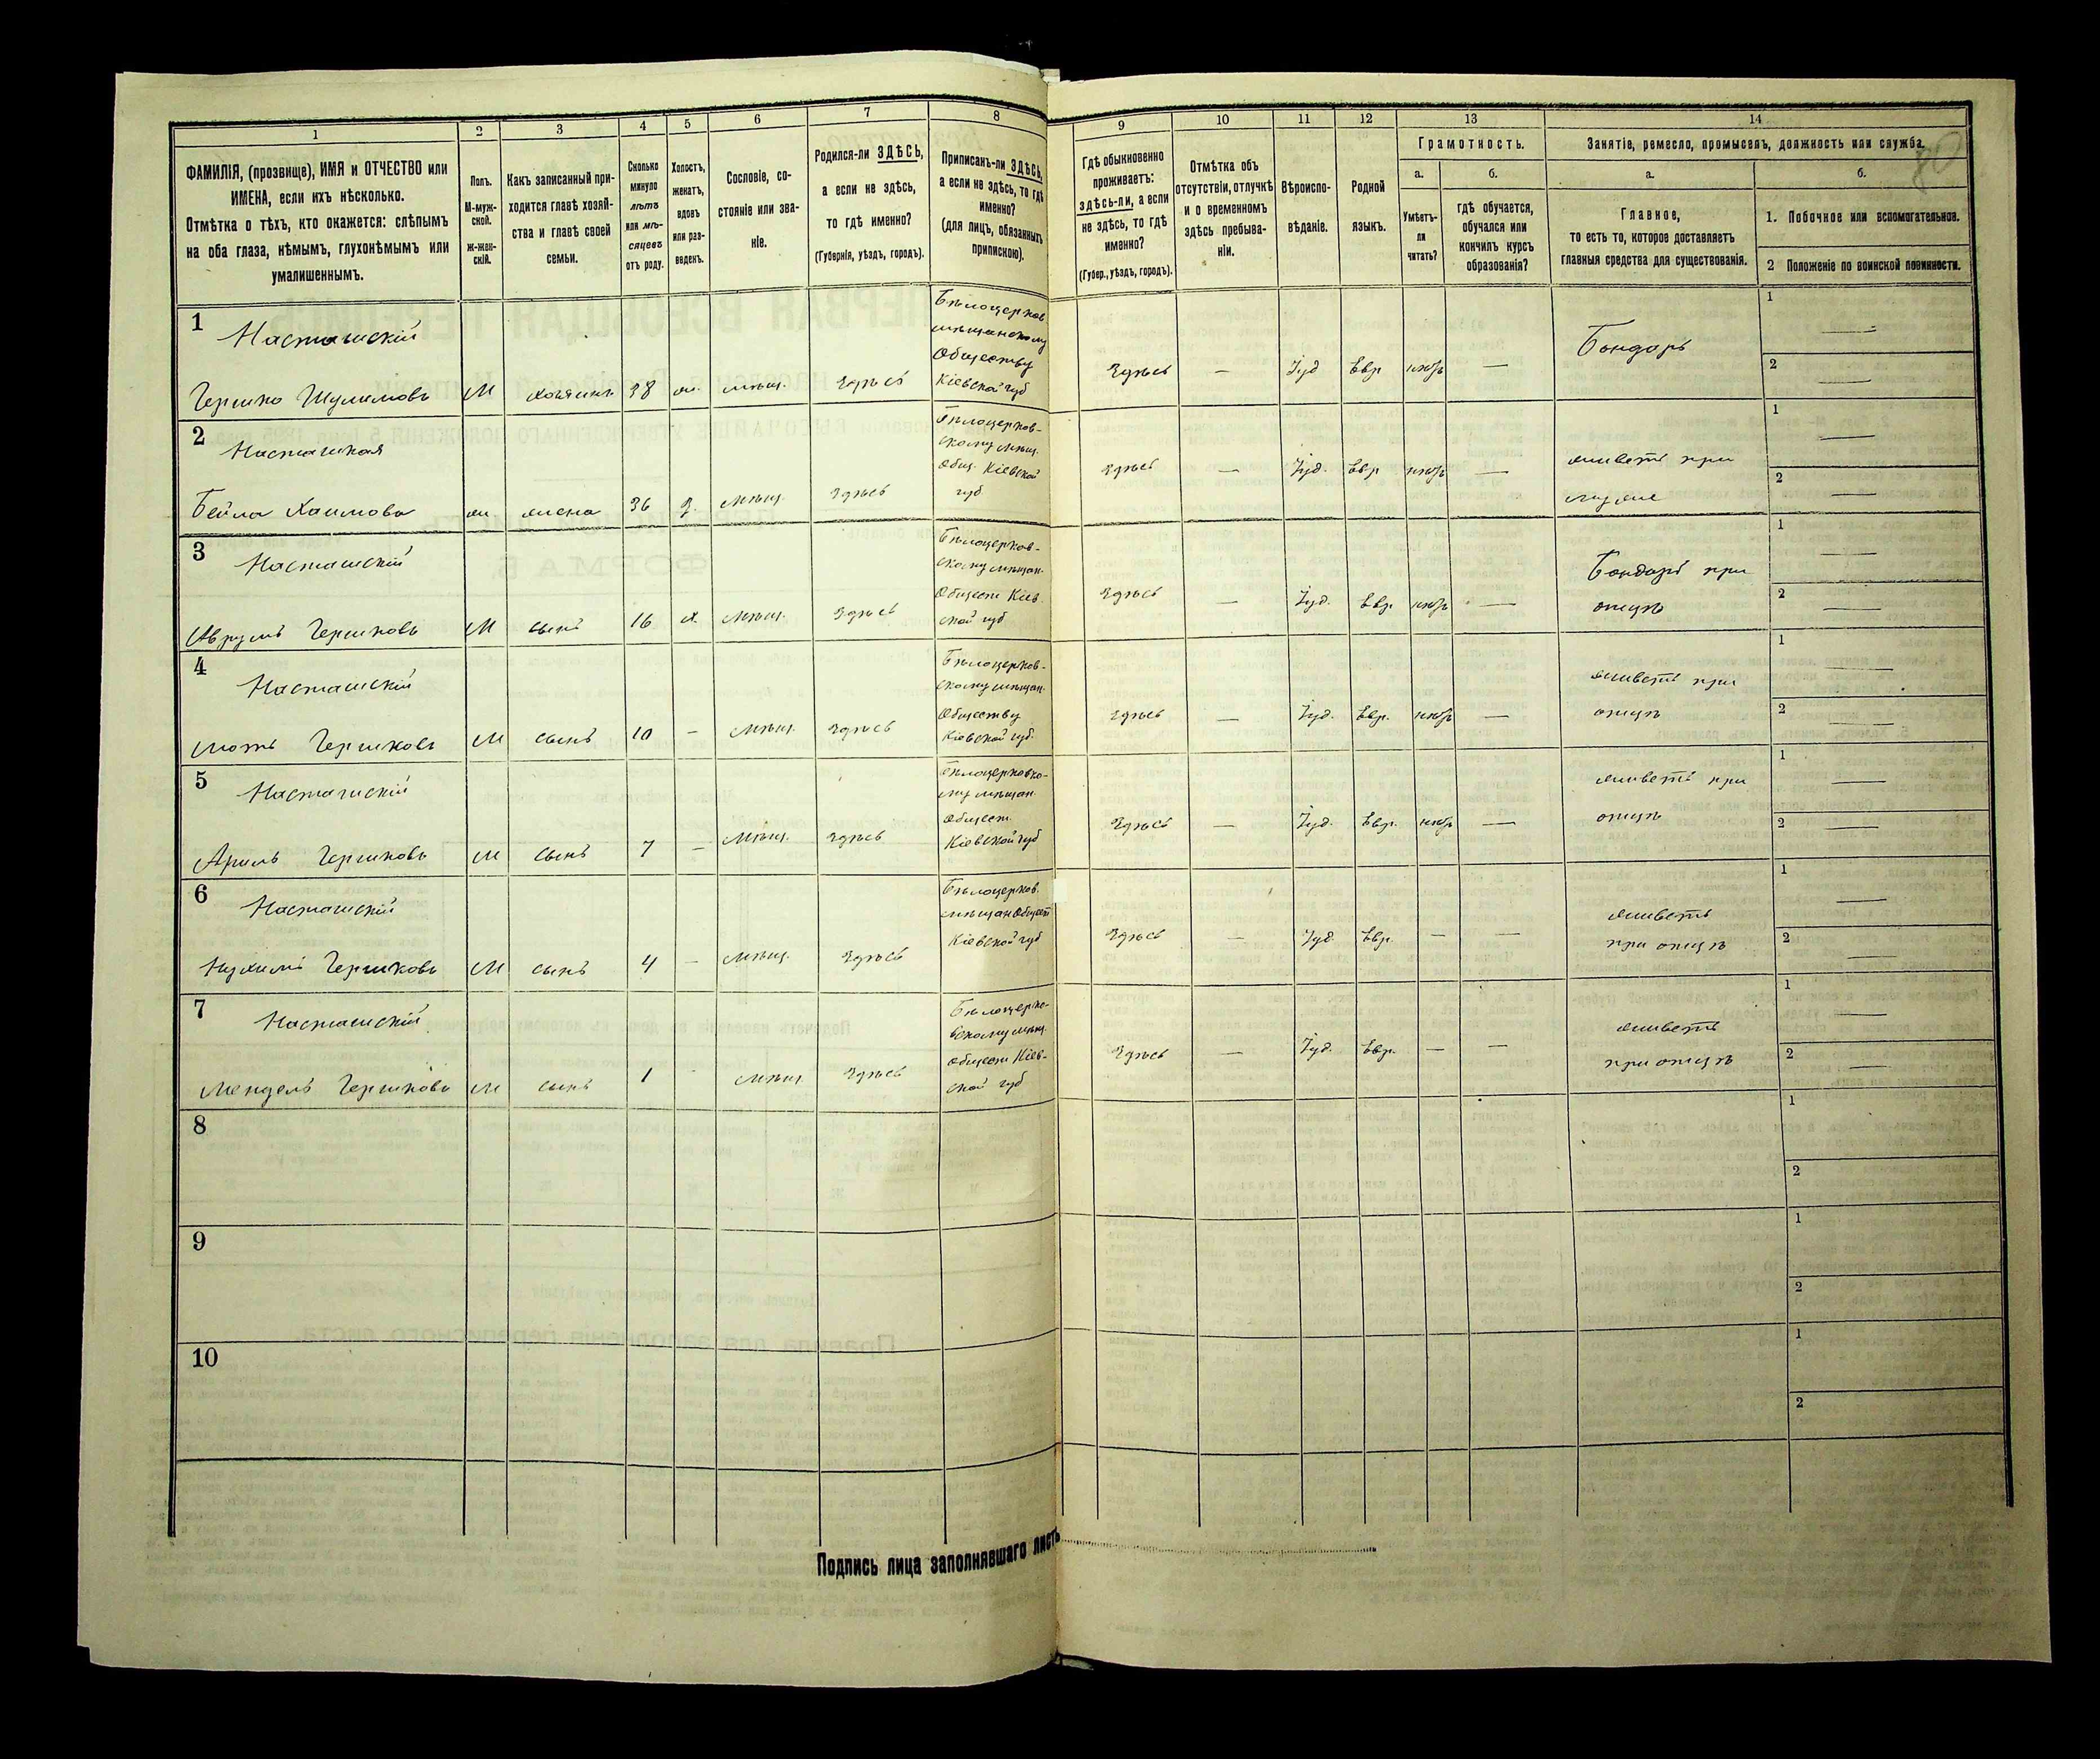 1 2 3 4 5 6 7 8 9 10 11 12 13 14
ФАМИЛІЯ, (прозвище), ИМЯ и ОТЧЕСТВО или
ИМЕНА, если ихъ нѣсколько.
Отмѣтка о тѣхъ, кто окажется: слѣпымъ
на оба глаза, нѣмымъ, глухонѣмымъ или
умалишеннымъ.
Полъ.
М-муж-
ской.
Ж-жен-
скій.
Какъ записанный при-
ходится главѣ хозяй-
ства и главѣ своей
семьи.
Сколько
минуло
лѣтъ
или мѣ-
сяцевъ
отъ роду.
Холостъ,
женатъ,
вдовъ
или раз-
веденъ.
Сословіе, со-
стояніе или зва-
ніе.
Родился-ли ЗДѢСЬ,
а если не здѣсь,
то гдѣ именно?
(Губернія, уѣздъ, городъ).
Приписанъ-ли ЗДѢСЬ,
а если не здѣсь, то гдѣ
именно?
(для лицъ, обязанныхъ
припискою).
Гдѣ обыкновенно
проживаетъ:
здѣсь-ли, а если
не здѣсь, то гдѣ
именно?
(Губер., уѣздъ, городъ).
Отмѣтка объ
отсутствіи, отлучкѣ
и о временномъ
здѣсь пребыва-
ніи.
Вѣроиспо-
вѣданіе.
Родной
языкъ.
Грамотность.
а.
Умѣетъ-
ли
читать?
б.
гдѣ обучается,
обучался или
кончилъ курсъ
образованія?
Занятіе, ремесло, промыселъ, должность или служба.
а.
Главное,
то есть то, которое доставляетъ
главныя средства для существованія.
б.
1. Побочное или вспомогательное.
2 Положеніе по воинской повинности.
80
1 Насташскій
Гершко Шулимовъ М хозяинъ 38 ж. мѣщ. Здѣсь
Бѣлоцерков.
мѣщанскому
Обществу
Кіевской губ
Здѣсь — Іуд Евр — Бондарь
1 —
2 —
2 Насташская
Бейла Хаимова ж. жена 36 з. мѣщ. Здѣсь
Бѣлоцерков-
скому мѣщ.
Общ. Кіевской
губ
Здѣсь — Іуд. Евр — живетъ при
мужѣ
1 —
2 —
3 Насташскій
Аврумъ Гершковъ М сынъ 16 х. мѣщ. Здѣсь
Бѣлоцерков-
скому мѣщан.
Обществ Кіев-
ской губ
Здѣсь — Іуд. Евр. — Бондарь при
отцѣ
1 —
2 —
4 Насташскій
Мотъ Гершковъ М сынъ 10 — мѣщ. Здѣсь
Бѣлоцерков-
скому мѣщан.
Обществу
Кіевской губ.
Здѣсь — Іуд. Евр. — живетъ при
отцѣ
1 —
2 —
5 Насташскій
Арилъ Гершковъ М сынъ 7 — мѣщ. Здѣсь
Бѣлоцерковско-
му мѣщан.
Обществ.
Кіевской губ
Здѣсь — Іуд. Евр. — живетъ при
отцѣ
1 —
2 —
6 Насташскій
Нухимъ Гершковъ М сынъ 4 — мѣщ. Здѣсь
Бѣлоцерков.
мѣщан Общест
Кіевской губ
Здѣсь — Іуд. Евр. — — живетъ
при отцѣ
1 —
2 —
7 Насташскій
Мендель Гершковъ М сынъ 1 - мѣщ Здѣсь
Бѣлоцерко-
вскому мѣщ.
обществ Кіев-
ской губ
Здѣсь — Іуд. Евр. — — живетъ
при отцѣ
1 —
2 —
8
1
2
9
1
2
10
1
2
Подпись лица заполнявшаго листъ